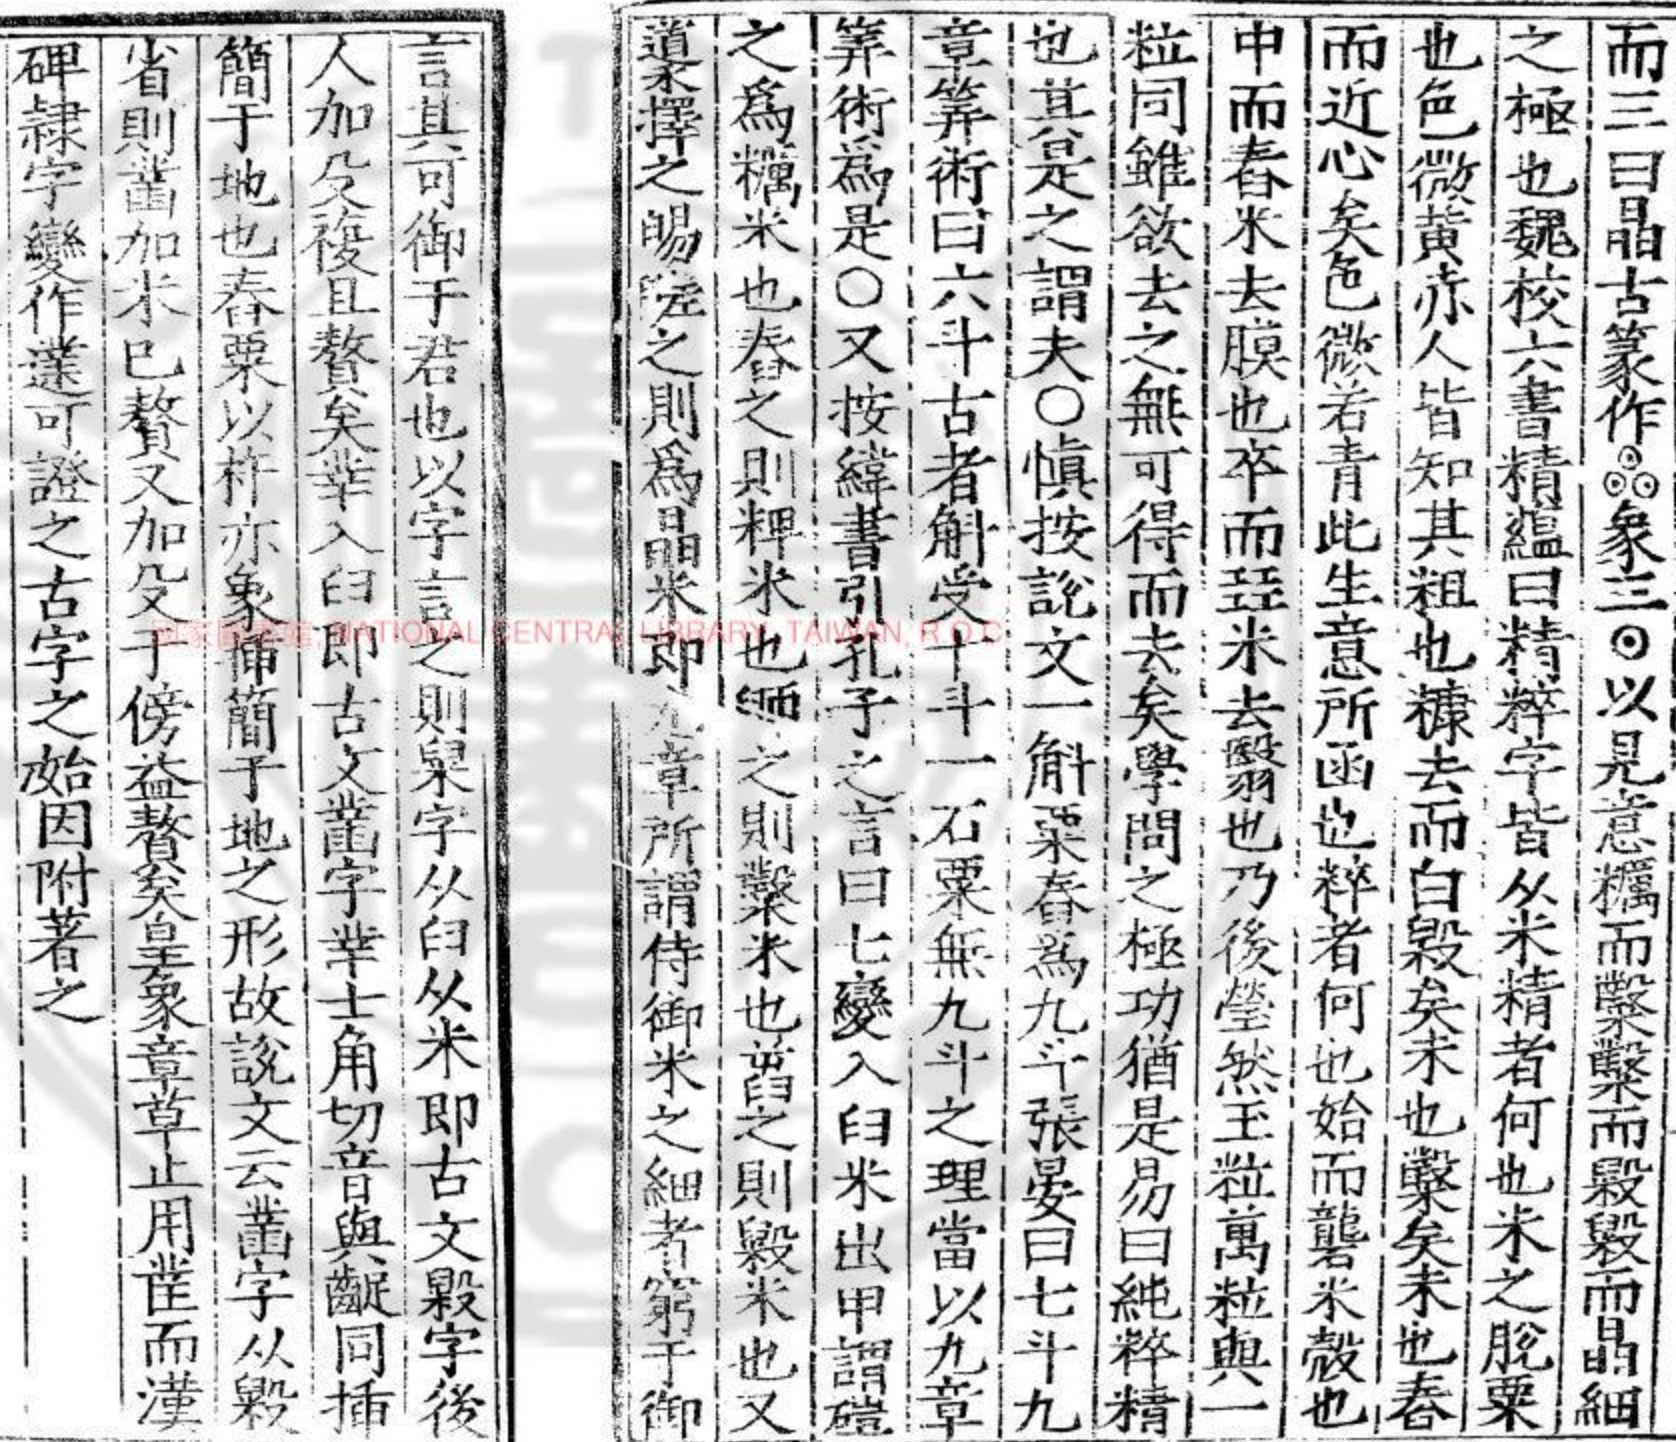 而三曰晶古篆作象三⊙以見意糲而鑿鑿而毇毇而晶細
之極也魏校六書精蘊曰精粹字皆从米精者何也米之脫粟
也色微黃赤人皆知其粗也糠去而白毇矣未也鑿矣未也舂
而近心矣色微若青此生意所函也粹者何也始而礱米殼也
中而舂米去膜也卒而米去翳也乃後瑩然玉粒萬粒與一
粒同雖欲去之無可得而去矣學問之極功猶是易曰純粹精
也其是之謂夫○慎按說文一斛粟舂為九斗張晏曰七斗九
章筭術曰六斗古者斛受十斗一石粟無九斗之理當以九章
筭術為是○又按緯書引孔子之言曰七變入臼米出甲謂磑
之為糲米也舂之則粺米也之則鑿米也舀之則毇米也又
擇之䁑之則為晶米即九章所謂侍御米之細者窮于御
言其可御于君也以字言之則字从臼从米即古文毇字後
人加殳複且贅矣丵入臼即古文字丵士角切音與齪同插
簡于地也舂粟以杵亦象插簡于地之形故說文云字从毇
省則加米已贅又加殳于傍益贅矣皇象章草止用凿而漢
碑隸字變作可證之古字之始因附著之
國家圖書館, NATIONAL CENTRAL LIBRARY, TAIWAN, R.O.C